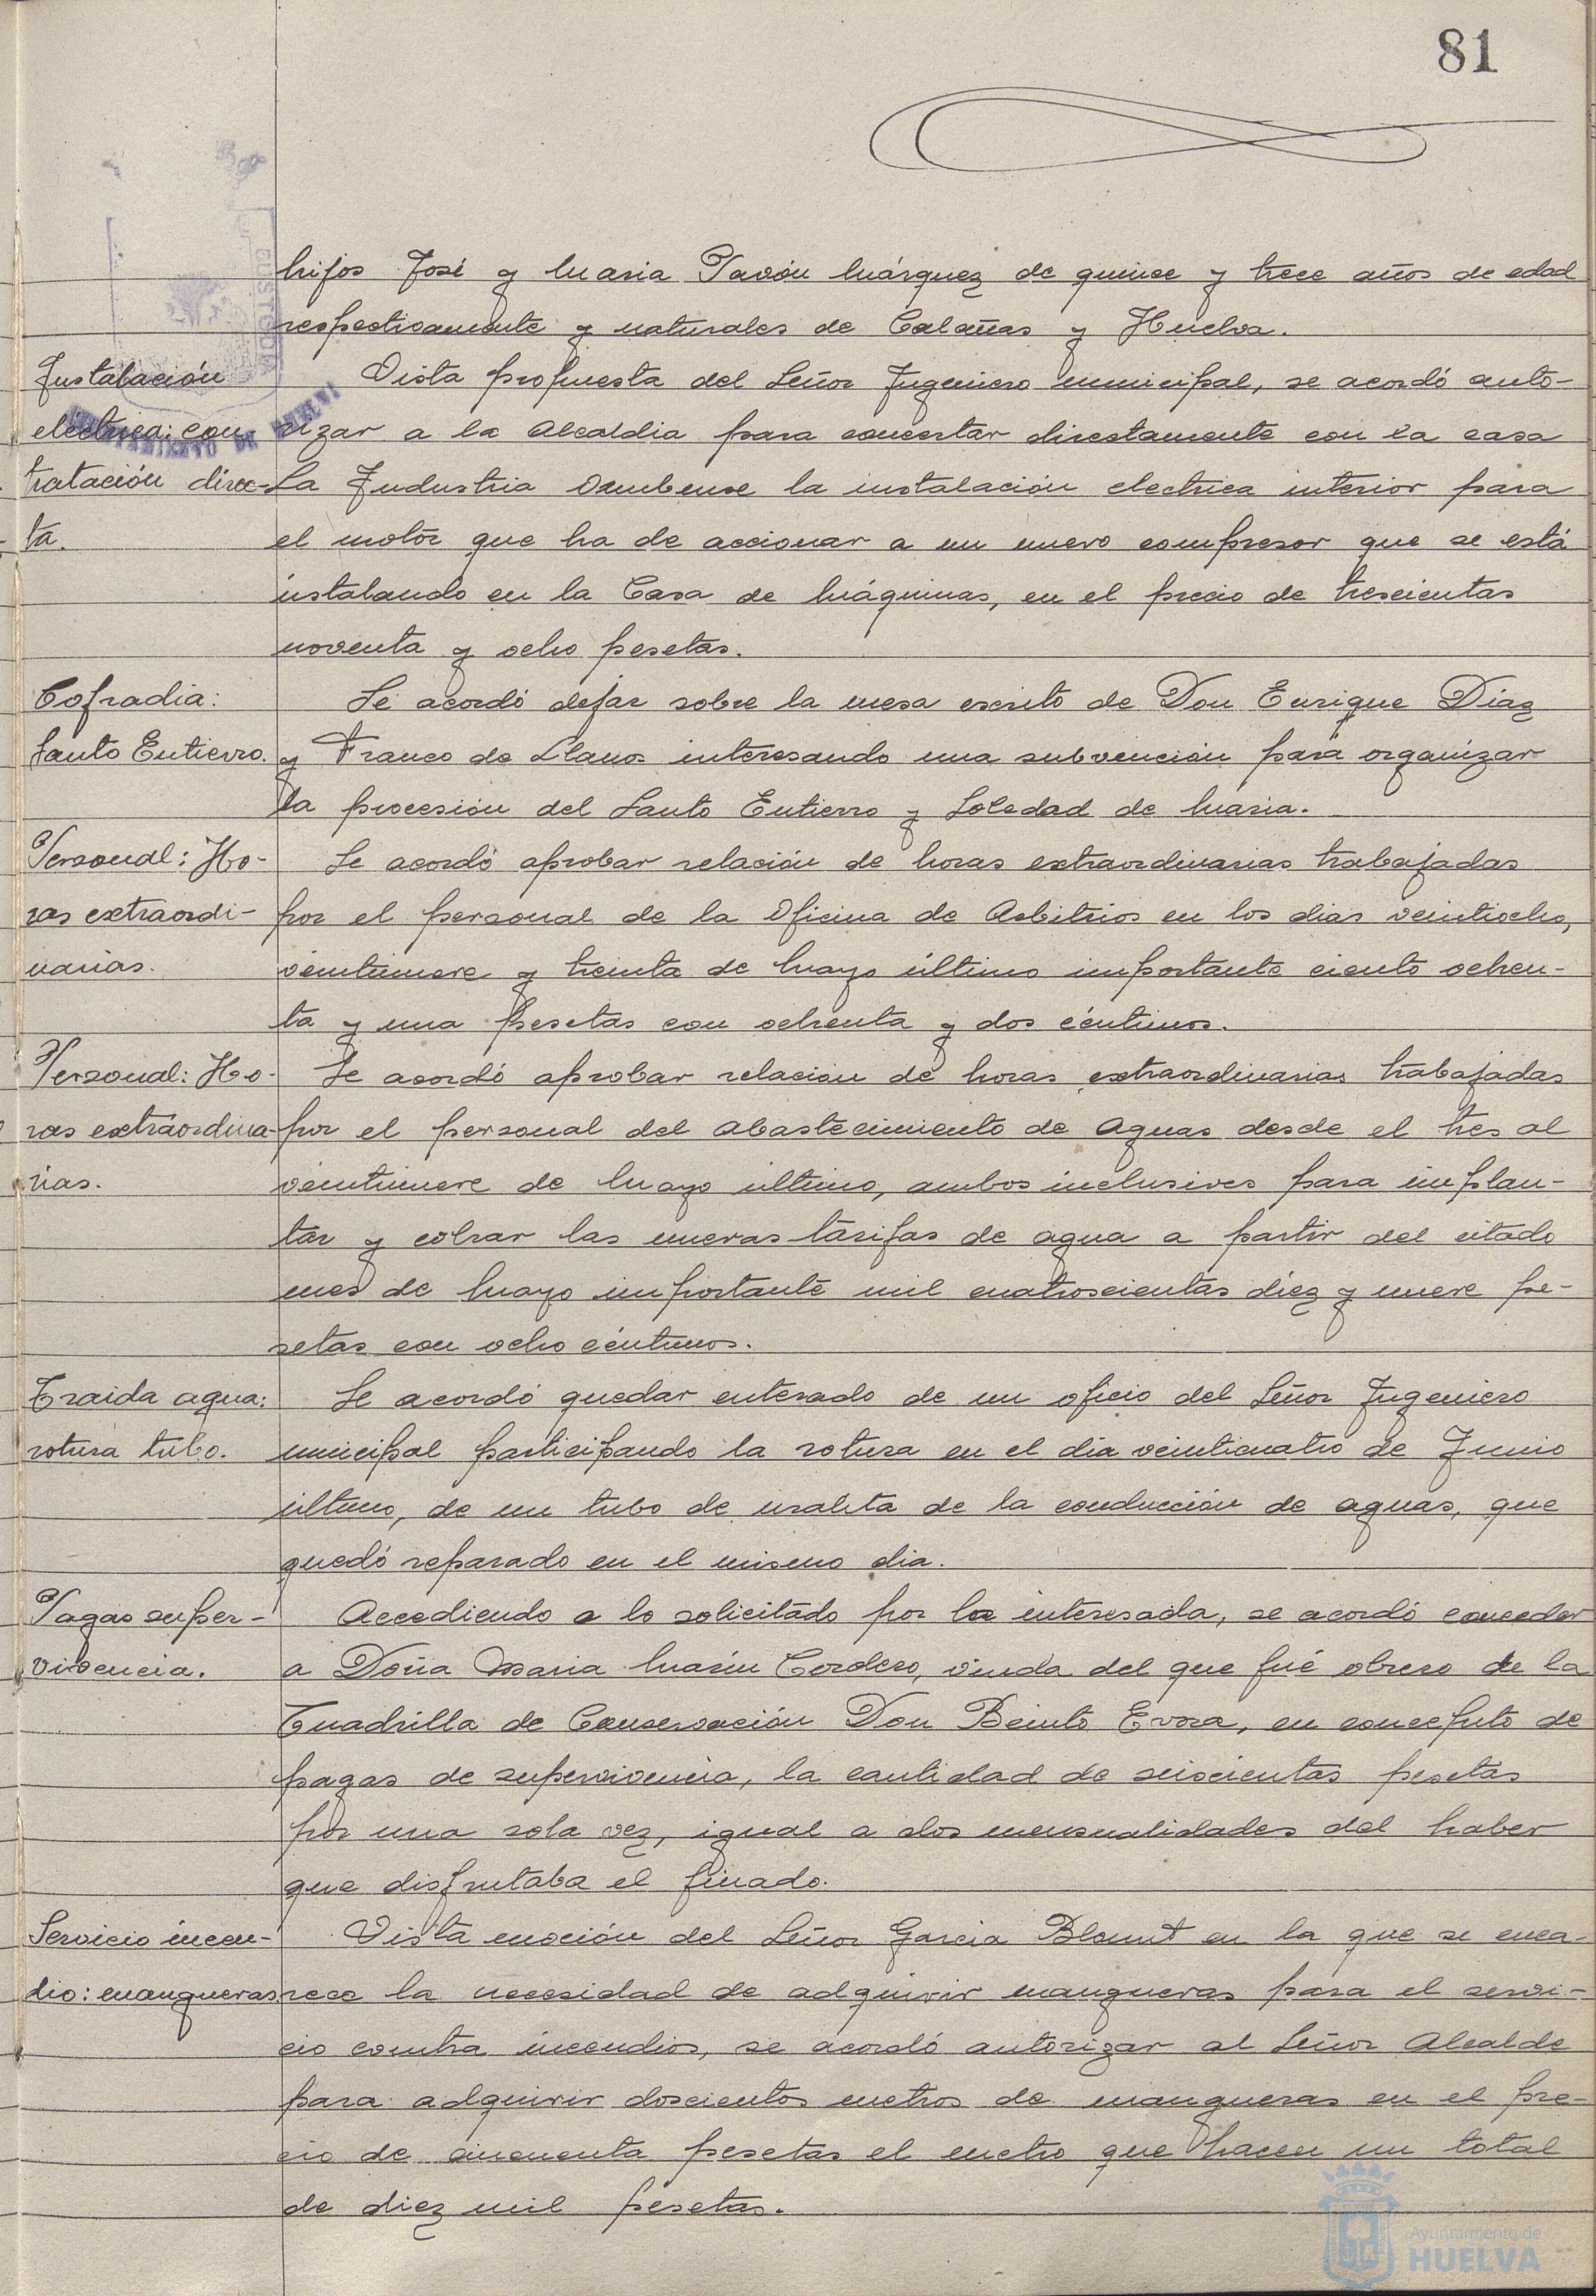 81
hijos José y Maria Pavón Márquez de quince y trece años de edad
respectivamente y naturales de Calañas y Huelva.
Instalación
electrica: con
tratación direc-
ta.
Vista propuesta del Señor Ingeniero municipal, se acordó auto-
rizar a la Alcaldia para concertar directamente con la casa
La Industria Onubense la instalación electrica interior para
el motor que ha de accionar a un nuevo compresor que se está
instalando en la Casa de Máquinas, en el precio de trescientas
noventa y ocho pesetas.
Cofradia:
Santo Entierro.
Se acordó dejar sobre la mesa escrito de Don Enrique Díaz
y Franco de Llanos interesando una subvención para organizar
la procesión del Santo Entierro y Soledad de Maria.
Personal: Ho-
ras extraordi-
narias.
Se acordó aprobar relación de horas extraordinarias trabajadas
por el personal de la Oficina de Arbitrios en los dias veintiocho,
veintinueve y treinta de Mayo último importante ciento ochen-
ta y una pesetas con ochenta y dos céntimos.
Personal: Ho-
ras extraordina-
rias.
Se acordó aprobar relación de horas extraordinarias trabajadas
por el personal del Abastecimiento de Aguas desde el tres al
veintinueve de Mayo último, ambos inclusives para implan-
tar y cobrar las nuevas tarifas de agua a partir del citado
mes de Mayo importante mil cuatroscientas diez y nueve pe-
setas con ocho céntimos.
Traida agua:
rotura tubo.
Se acordó quedar enterado de un oficio del Señor Ingeniero
municipal participando la rotura en el dia veinticuatro de Junio
último, de un tubo de uralita de la conducción de aguas, que
quedó reparado en el mismo dia.
Pagas super-
vivencia.
Accediendo a lo solicitado por la interesada, se acordó conceder
a Doña Maria Marín Cordero, viuda del que fué obrero de la
Cuadrilla de Conservación Don Benito Evora, en concepto de
pagas de supervivencia, la cantidad de seiscientas pesetas
por una sola vez, igual a dos mensualidades del haber
que disfrutaba el finado.
Servicio incen-
dio: mangueras
Vista moción del Señor Garcia Blount en la que se enca-
rece la necesidad de adquirir mangueras para el servi-
cio contra incendios, se acordó autorizar al Señor Alcalde
para adquirir doscientos metros de mangueras en el pre-
cio de cincuenta pesetas el metro que hacen un total
de diez mil pesetas.
Ayuntamiento de
HUELVA